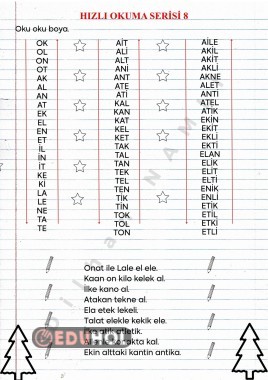 HIZLI OKUMA SERİSİ 8
Oku oku boya.
OK
OL
ON
OT
AK
AL
AN
AT
EK
EL
EN
ET
İL
İN
İT
KE
Kİ
LA
LE
NE
TA
TE
AİT
ALİ
ALT
ANİ
ANT
ATE
ATİ
KAL
KAN
KAT
KEL
KET
TAK
TAL
TAN
TEK
TEL
TEN
TİK
TİN
TOK
TOL
TON
AİLE
AKİL
AKİT
AKLİ
AKNE
ALET
ANTİ
ATEL
ATİK
EKİN
EKİT
EKLİ
EKTİ
ELAN
ELİK
ELİT
ELTİ
ENİK
ENLİ
ETİK
ETİL
ETKİ
ETLİ
Onat ile Lale el ele.
Kaan on kilo kelek al.
İlke kano al.
Atakan tekne al.
Ela etek lekeli.
Talat elekle kekik ele.
atletik.
kal.
Ekin alttaki kantin antika.
EDU